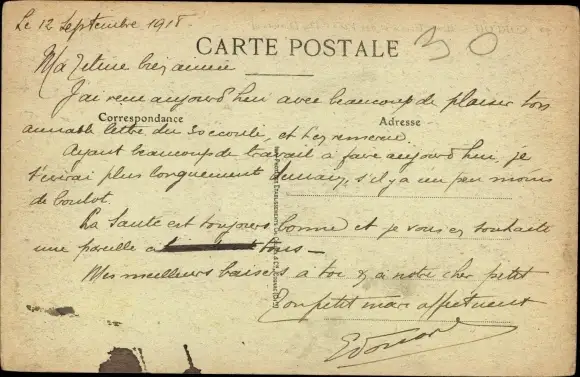 Le 12 Septembre 1918
CARTE POSTALE
30
Ma bien aimée
J'ai reçu aujourd'hui avec beaucoup de plaisir ton
Correspondance
Adresse
aimable lettre du écoulé, et t'en remercie.
Ayant beaucoup de travail à faire aujourd'hui, je
t'écrirai plus longuement demain, s'il y a un peu moins
de boulot.
La santé est toujours bonne et je vous en souhaite
une pareille à tous —
Mes meilleurs baisers à toi & à notre cher petit
Ton petit mari affectueux
Edouard